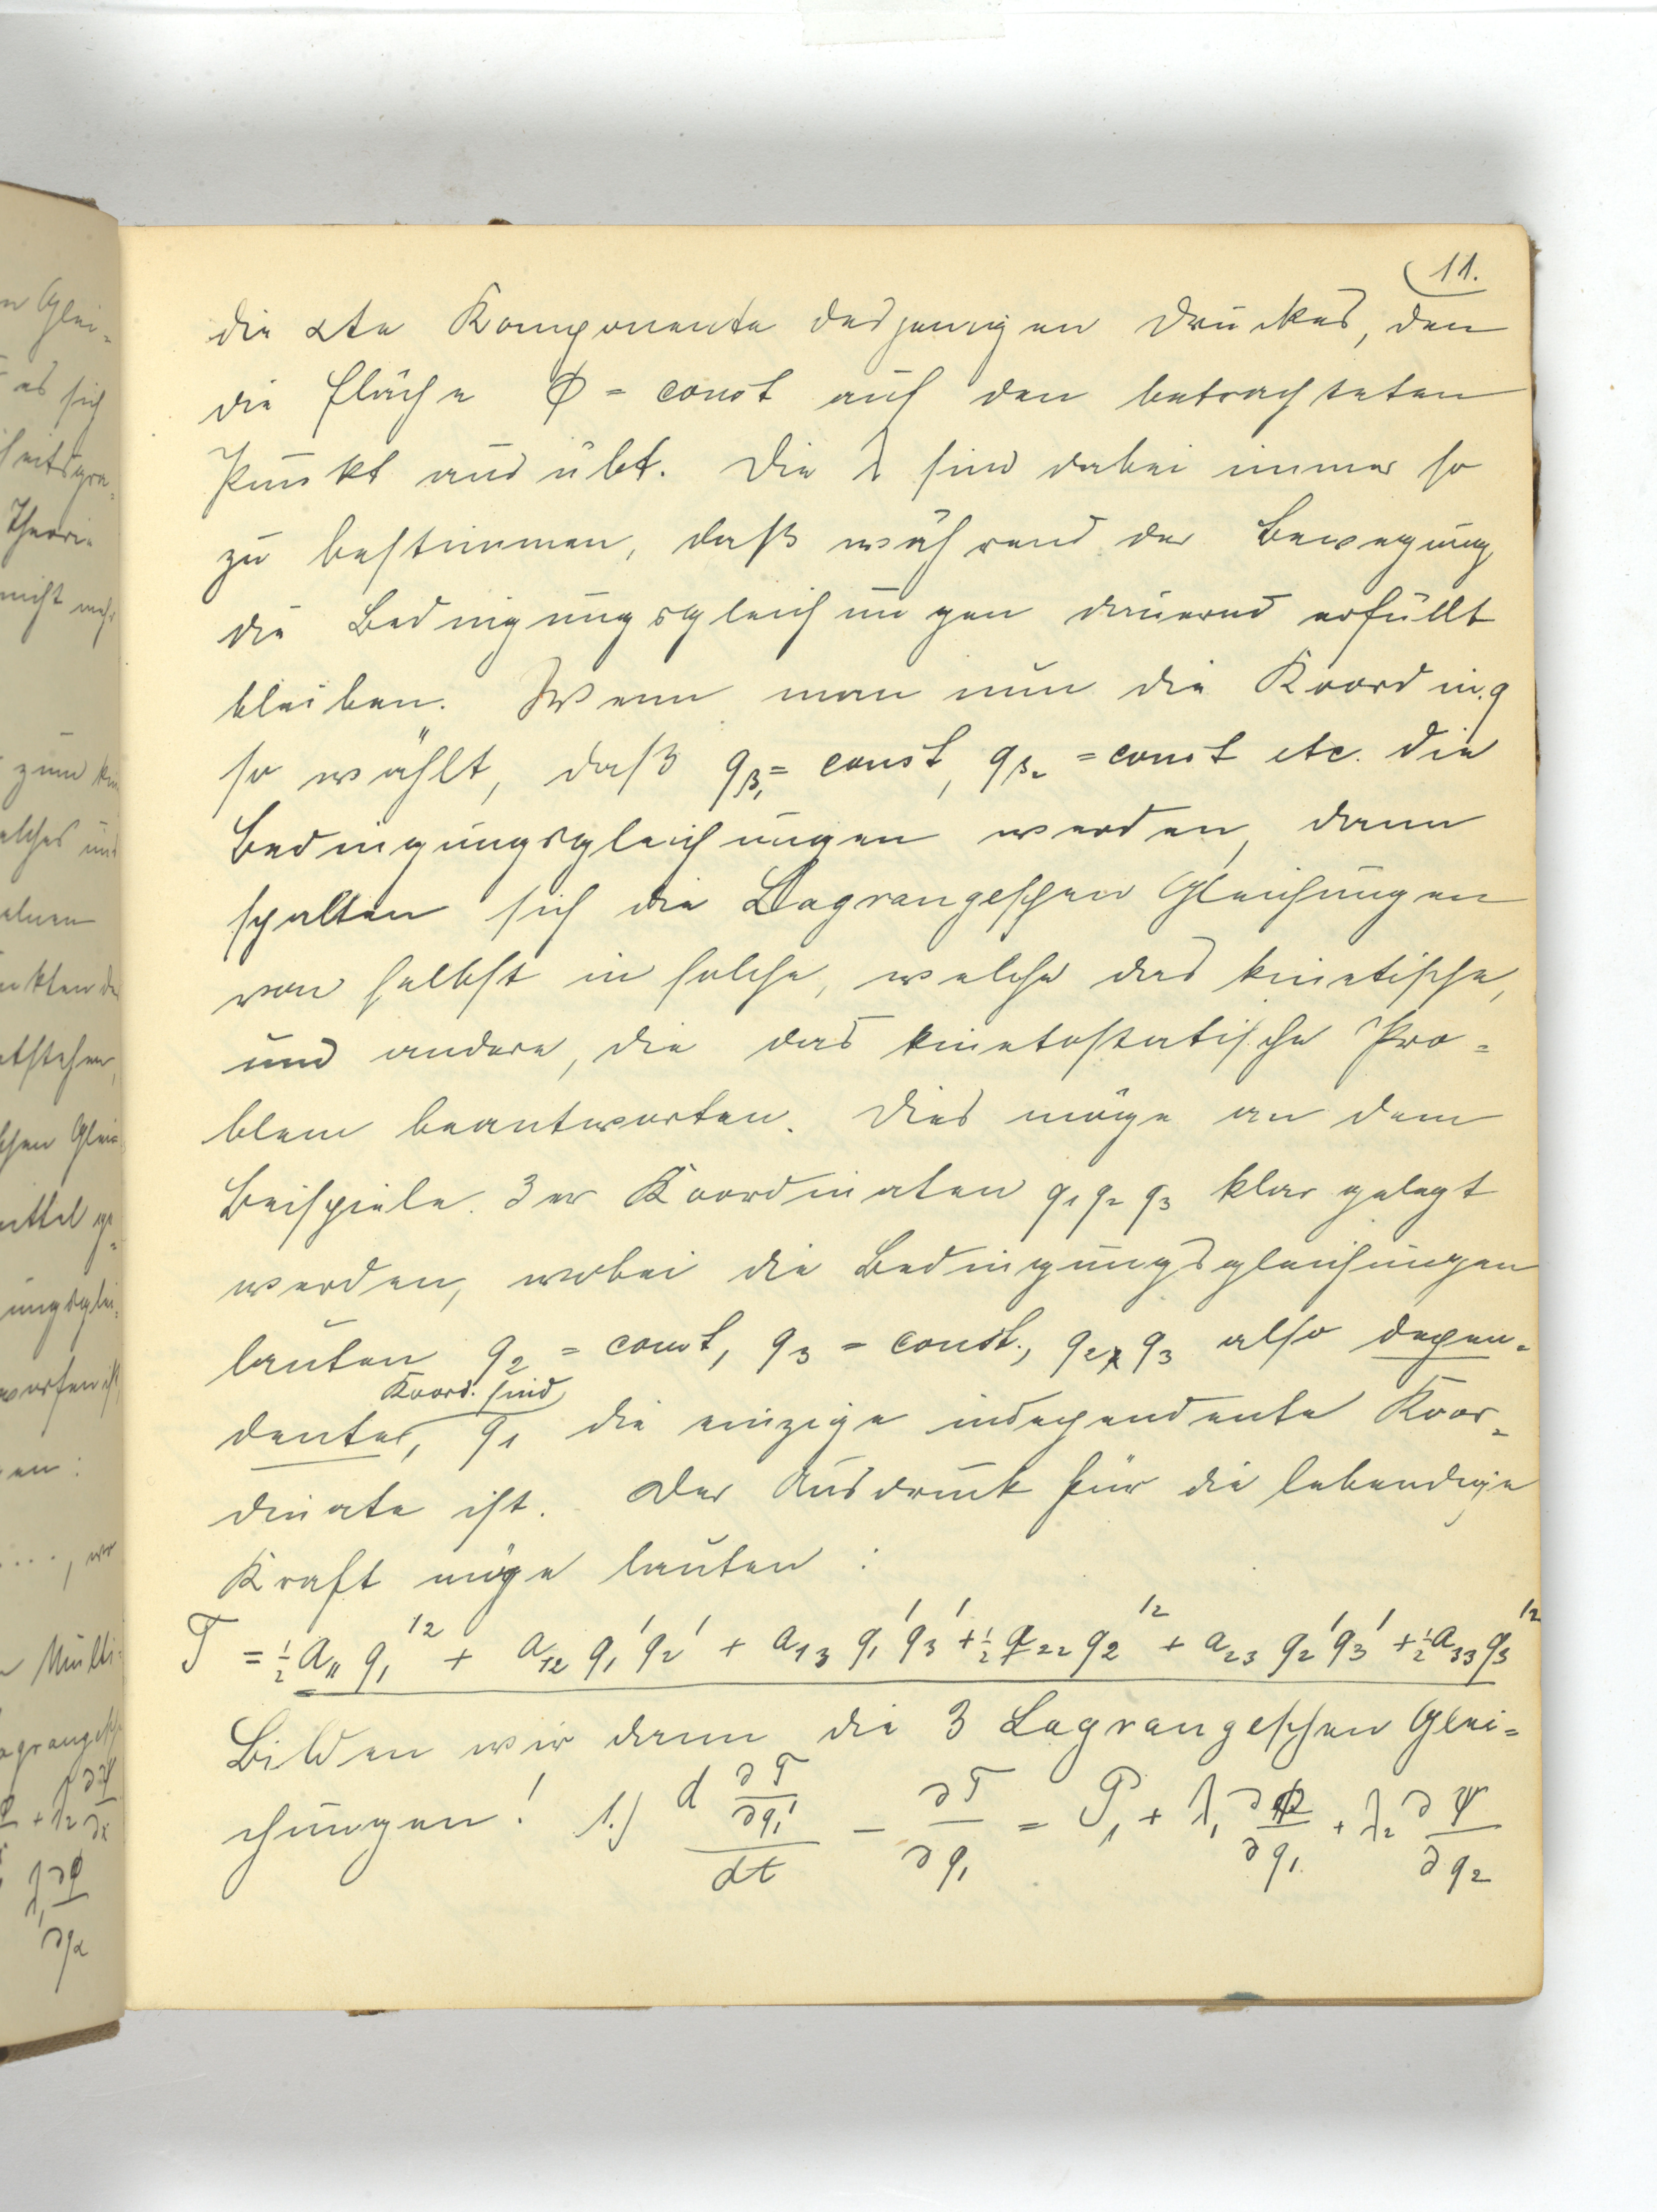 11.
die αte Komponente desjenigen Druckes, den
die Fläche Φ = const auf den betrachteten
Punkt ausübt. Die λ sind dabei immer so
zu bestimmen, daß während der Bewegung
die Bedingungsgleichungen dauernd erfüllt
bleiben. Wenn man nun die Koordin. q
so wählt, daß q_β₁ = const, q_β₂ = const etc. die
Bedingungsgleichungen werden, dann
spalten sich die Lagrangeschen Gleichungen
von selbst in solche, welche das kinetische,
und andere, die das kinetostatische Pro=
blem beantworten. Dies möge an dem
Beispiele 3er Koordinaten q₁ q₂ q₃ klar gelegt
werden, wobei die Bedingungsgleichungen
lauten q₂ = const, q₃ = const., q₂, q₃ also depen=
Koord. sind
dente, q₁ die einzige independente Koor=
dinate ist. Der Ausdruck für die lebendige
Kraft möge lauten :
T = ½ a₁₁ q₁'² + a₁₂ q₁' q₂' + a₁₃ q₁' q₃' + ½ a₂₂ q₂'² + a₂₃ q₂' q₃' + ½ a₃₃ q₃'²
Bilden wir dann die 3 Lagrangeschen Glei=
chungen! 1.) d ∂T/∂q₁' / dt − ∂T/∂q₁ = P₁ + λ₁ ∂Φ/∂q₁ + λ₂ ∂Ψ/∂q₂